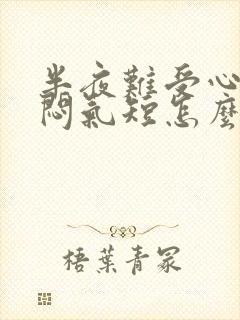 半夜難受心
悶氣短怎麼
梧葉青冢